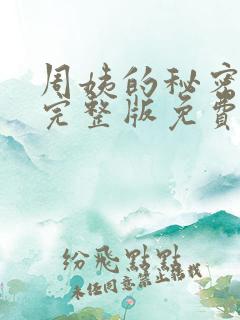 周姨的秘密
完整版免费
纷飞點點
未经同意禁止转载